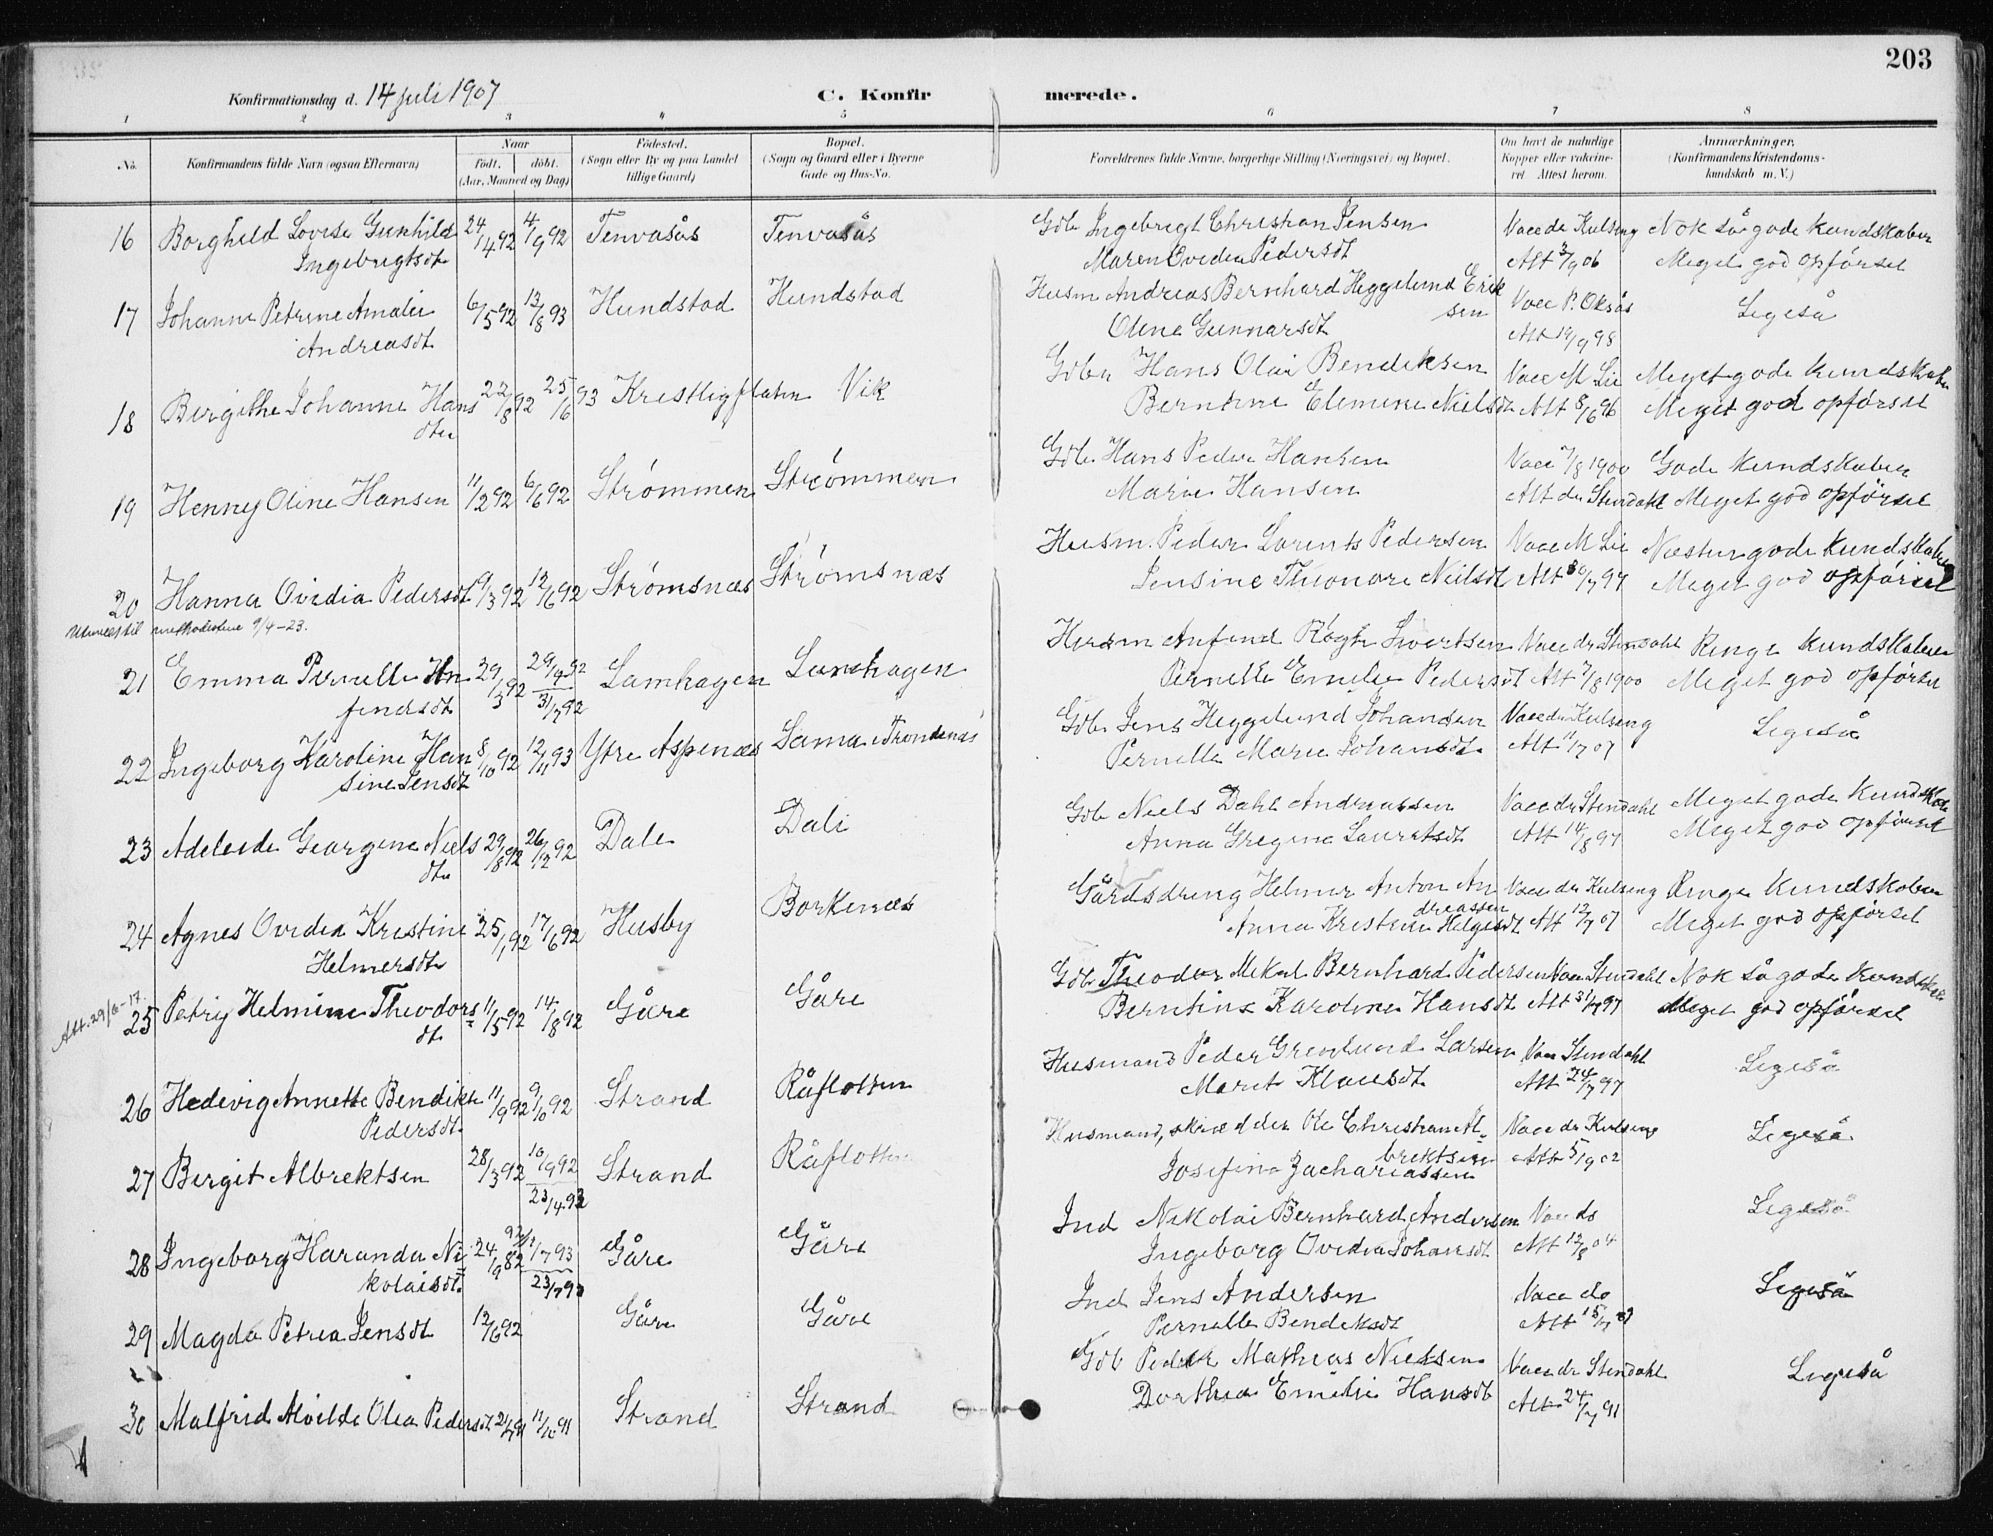 203
Konfirmationsdag d. 14 juli 1907 C. Konfirmerede.
1 2 3 4 5 6 7 8
No. Konfirmandens fulde Navn (ogsaa Efternavn) Naar født. døbt. (Aar, Maaned og Dag) Fødested. (Sogn eller By og paa Landet tillige Gaard) Bopæl. (Sogn og Gaard eller i Byerne Gade og Hus-No. Forældrenes fulde Navne, borgerlige Stilling (Næringsvei) og Bopæl. Om havt de naturlige Kopper eller vakcineret. Attest herom. Anmærkninger. (Konfirmandens Kristendomskundskab m. V.)
16 Borghild Lovise Gunhild 24/4 92 4/9 92 Tenvasås Tenvasås Gdb Ingebrigt Christian Jensen Vacc dr Kulseng Nok så gode kundskaber
Ingebrigtsdt Maren Ovedia Pedersdt Att 3/9 06 Meget god opførsel
17 Johanne Petrine Amalie 6/5 92 13/8 93 Hundstad Hundstad Husm Andreas Bernhard Heggelund Erik Vacc P. Oksås Ligeså
sen
Andreasdt Oline Gunnarsdt Att 19/9 98
18 Bergithe Johanne Hans 22/8 92 25/6 93 Vik Gdbr Hans Olai Bendiksen Vacc M Lie Meget gode kundskaber
dtr Berntine Elemine Nielsdt Att 8/6 96 Meget god opførsel
19 Henny Oline Hansen 11/2 92 6/6 92 Strømmen Strømmen Gdb. Hans Peder Hansen Vacc 7/8 1900 Gode kundskaber
Marie Hansen Att dr Stendahl Meget god opførsel
20 Hanna Ovidia Pedersdt 9/3 92 12/6 92 Strømsnæs Strømsnæs Husm. Peder Lorents Pedersen Vacc M Lie Næsten gode kundskaber
Udmeldt til methodistene 9/4-23. Jensine Theonore Neilsdt Att 30/7 97 Meget god opførsel
21 Emma Pernelle An 29/3 92 29/9 92 Lamhagen Lamhagen Husm Anfend Røgh Sivertsen Vacc dr Stendahl Ringe kundskaber
fendsdt 31/7 92 Pernelle Emelie Pedersdt Att 7/8 1900 Meget god opførsel
22 Ingeborg Karoline Han 8/10 92 12/11 93 Ytre Aspenæs Sama i Trondenæs Gdb Jens Heggelund Johansen Vacc dr Kulseng Ligeså
sine Jensdt Pernelle Marie Johansdt Att 11/7 07
23 Adeleide Georgine Niels 29/8 92 26/12 92 Dale Dale Gdb Niels Dahl Andreassen Vacc dr Stendahl Meget gode kundskaber
dtr Anna Gregine Lauretsdt Att 14/8 97 Meget god opførsel
24 Agnes Ovidia Kristine 25/1 92 17/6 92 Husby Borkenæs Gårdsdreng Helmer Anton An Vacc dr Kulseng Ringe kundskaber
dreassen
Helmersdt Anna Kristine Helgesdt Att 12/7 07 Meget god opførsel
Att. 29/6-17.
25 Petry Helmine Theodors 11/5 92 14/8 92 Gåre Gåre Gdb Theodor Mekal Bernhard Pedersen Vacc Stendahl Nok så gode kundskaber
dt. Berntine Karoline Hansdt Att 31/7 97 Meget god opførsel
26 Hedevig Annette Bendikte 11/9 92 9/10 92 Strand Råflotten Husmand Peder Grenlund Larsen Vacc Stendahl Ligeså
Pedersdt. Maret Klausdt Att 24/7 97
27 Bergit Albrektsen 28/3 92 10/9 92 Strand Råflotten Husmand, skrædder Ole Christian Al- Vacc dr Kulseng Ligeså
brektsen
23/4 93 Josefine Zachariassen Att 5/9 02
28 Ingeborg Haranda Ni- 24/9 82 92 7 93 Gåre Gåre Ind Nikolai Bernhard Andersen Vacc do Ligeså
kolaisdt. 23/7 93 Ingeborg Ovidia Johansdt Att 12/8 04
29 Magda Petrea Jensdt 12/6 92 Gåre Gåre Ind Jens Andersen Vacc do Ligeså
Pernelle Bendeksdt Att 15/7
30 Malfrid Alvilde Olea Pedersdt 91 91 Strand Strand Gdb Peder Mathias Nielsen Vacc dr Stendahl Ligeså
Dorthea Emilie Hansdt Att 24/7 91